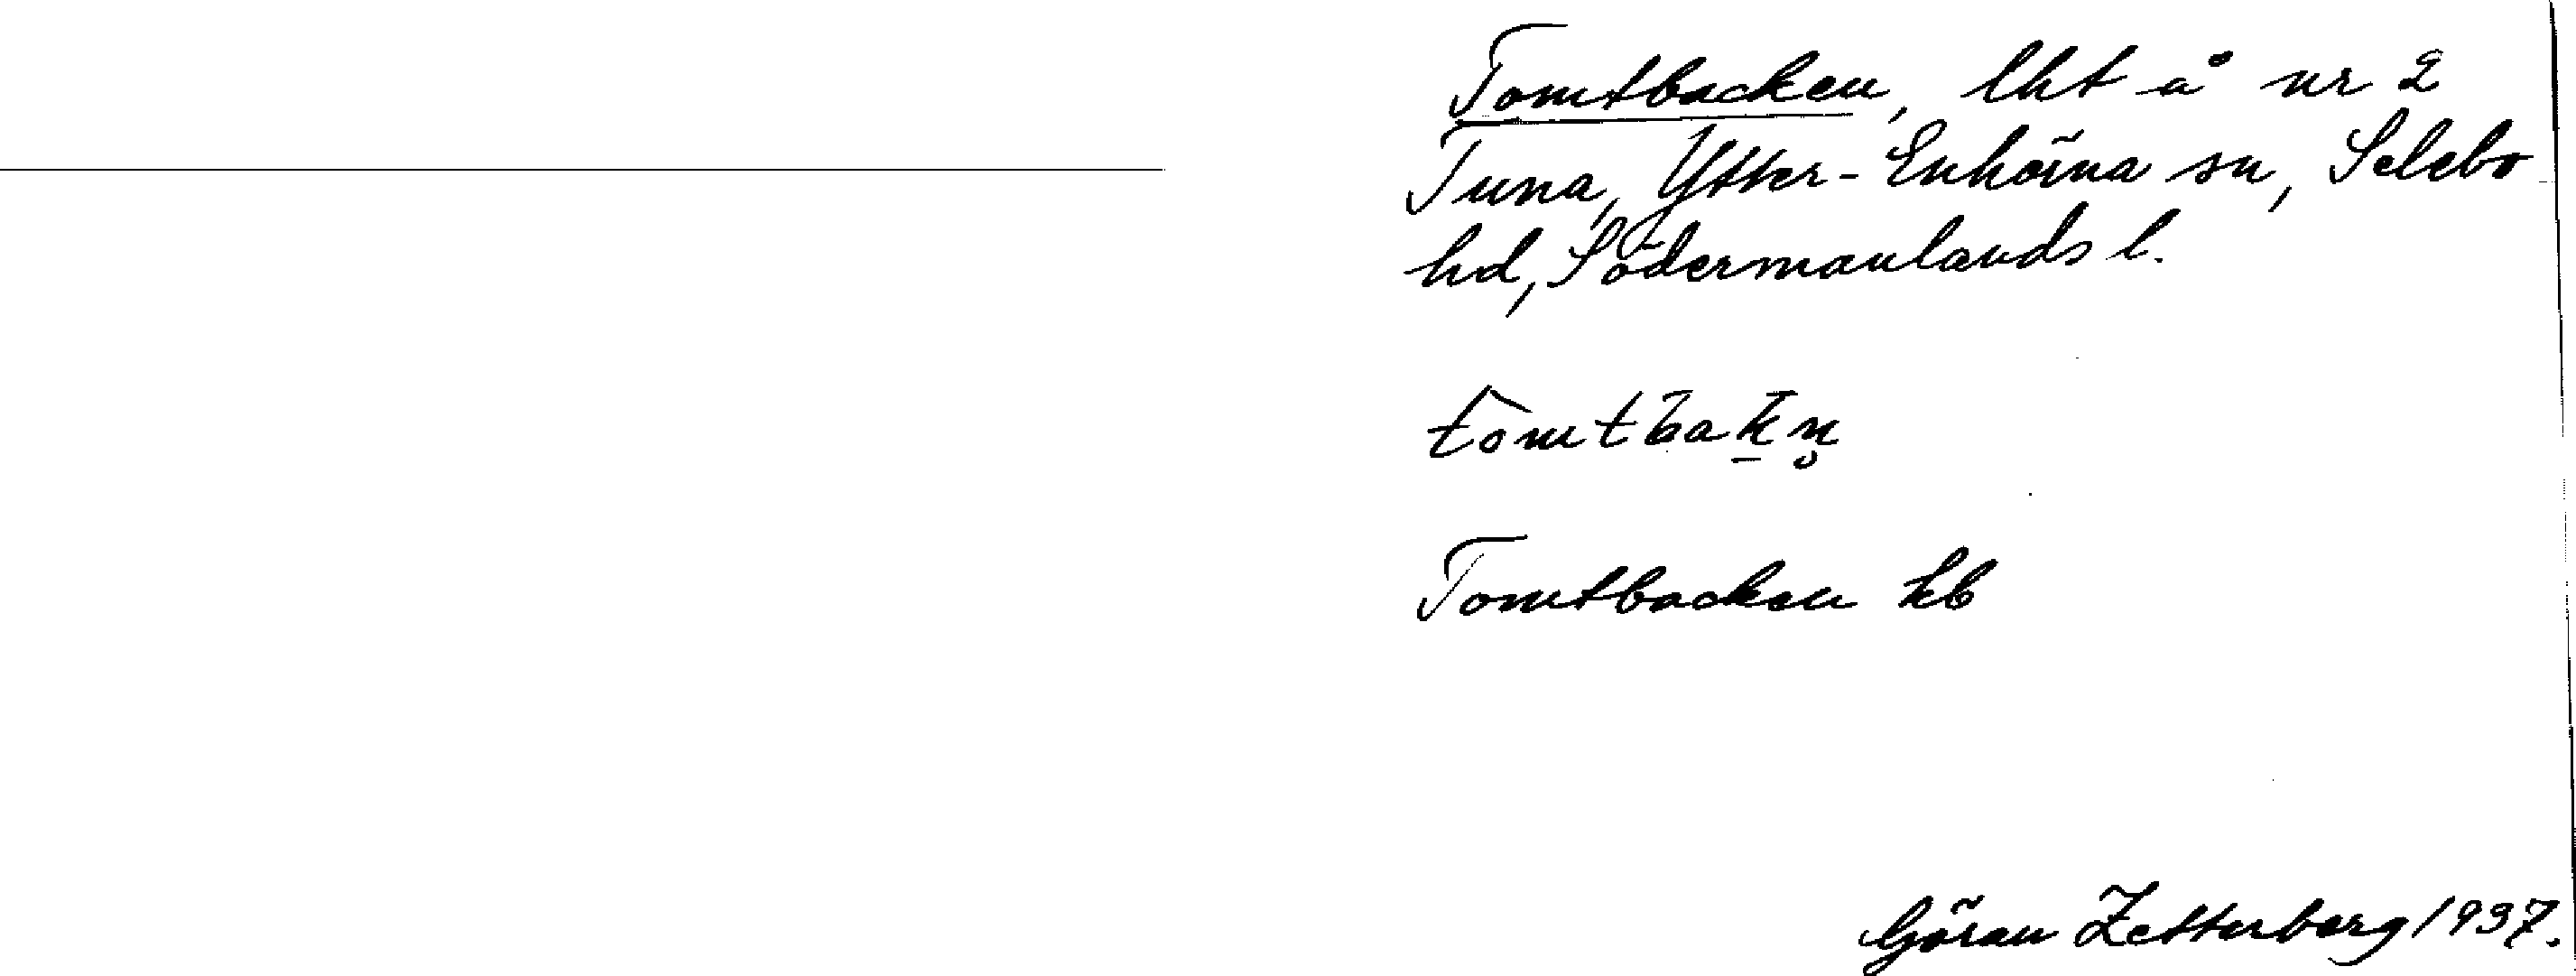 Tomtbacken, lht å nr 2
Tuna, Ytter-Enhörna sn, Selebo
hd, Södermanlands l.
tòmtbak̠n̥
Tomtbacken kb
Göran Zetterberg 1937.